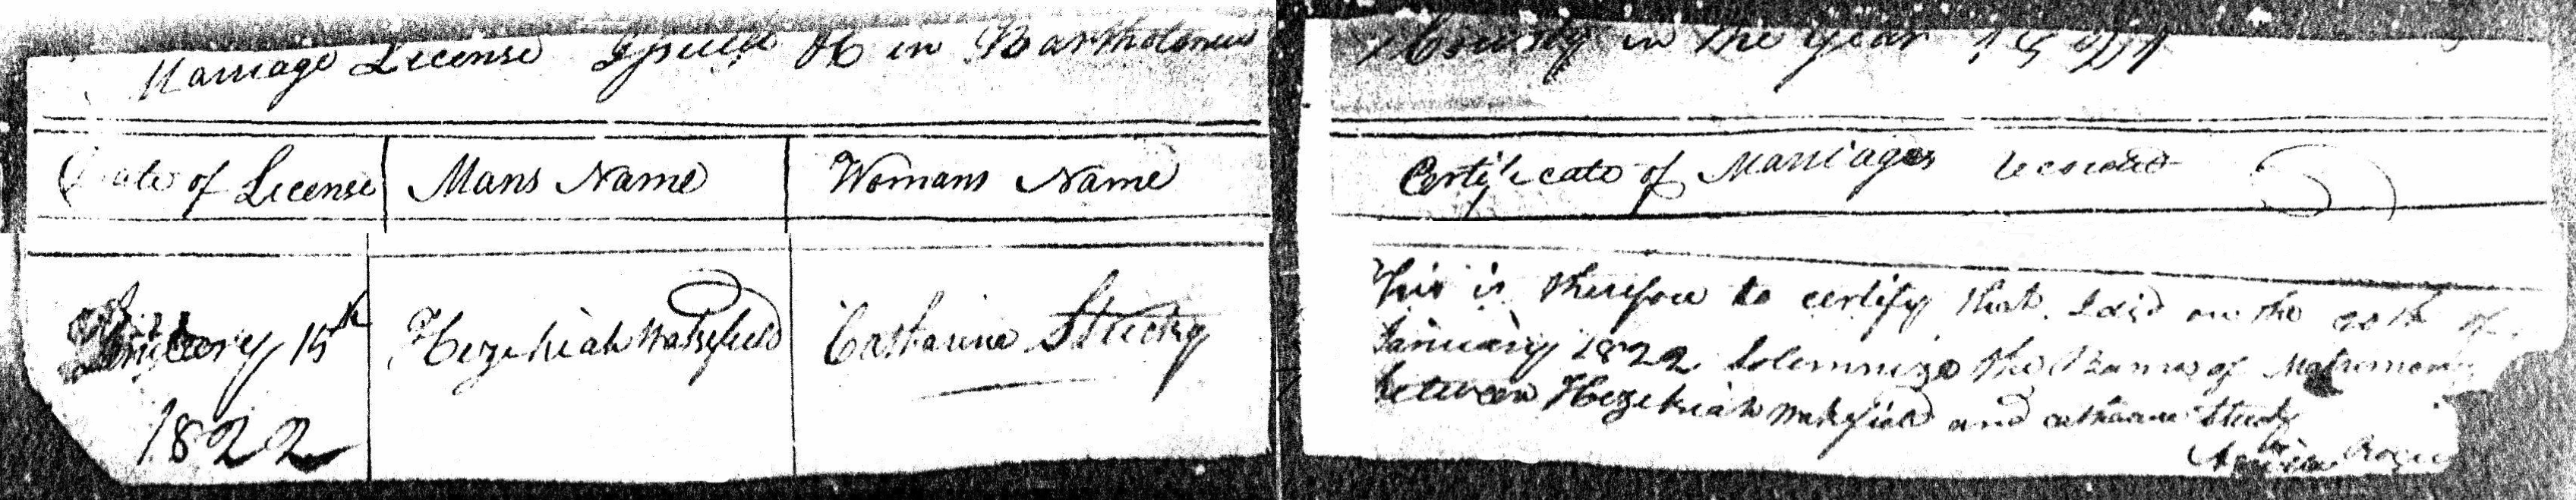 Marriage License Issued &c in Bartholomew
County in the year
Date of License
Mans Name
Womans Name
Certificate of Marriages Recorded
January 15th
1822
Hezekiah Wakefield
Catharine
This is therefore to certify that I did on the 20th of
January 1822 Solemnize the Banns of Matrimony
between Hezekiah Wakefield and catharine